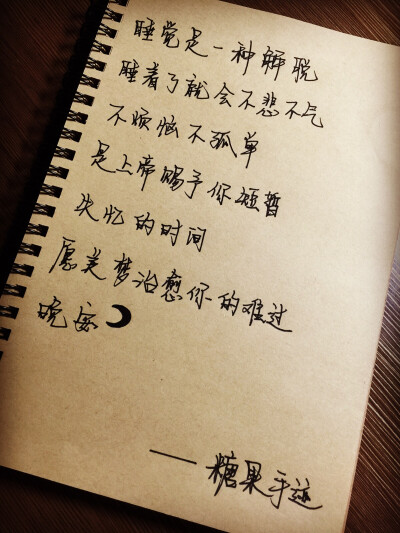 睡觉是一种解脱
睡着了就会不悲不气
不烦恼不孤单
是上帝赐予你短暂
失忆的时间
愿美梦治愈你的难过
晚安
——糖果手迹